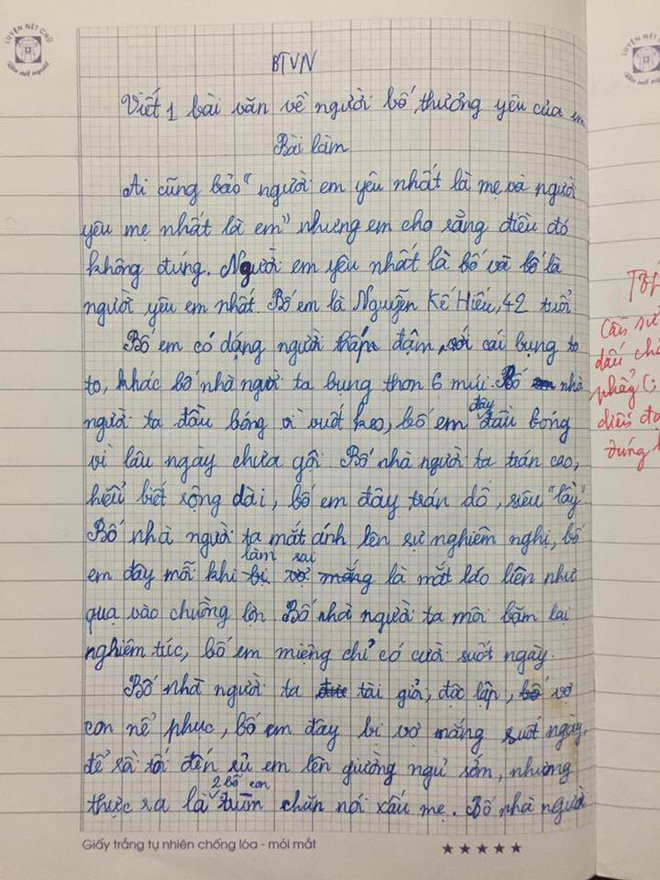 LUYỆN NÉT CHỮ
Rèn nết người
LUYỆN NÉT
BTVN
Viết 1 bài văn về người bố thương yêu của em
Bài làm
Ai cũng bảo "người em yêu nhất là mẹ và người
yêu mẹ nhất là em" nhưng em cho rằng điều đó
không đúng. Người em yêu nhất là bố và bố là
người yêu em nhất. Bố em là Nguyễn Kế Hiếu, 42 tuổi
Bố em có dáng người thấp đậm, với cái bụng to
to, khác bố nhà người ta bụng thon 6 múi. Bố nhà
người ta đầu bóng vì vuốt keo, bố em đây đầu bóng
vì lâu ngày chưa gội. Bố nhà người ta trán cao,
hiểu biết rộng dài, bố em đây trán dô, siêu "lầy"
Bố nhà người ta mắt ánh lên sự nghiêm nghị, bố
em đây mỗi khi làm sai là mắt láo liên như
quạ vào chuồng lợn. Bố nhà người ta môi bặm lại
nghiêm túc, bố em miệng chỉ có cười suốt ngày.
Bố nhà người ta tài giỏi, độc lập, vợ
con nể phục, bố em đây bị vợ mắng suốt ngày,
để rồi tối đến rủ em lên giường ngủ sớm, nhưng
thực ra là 2 bố con trùm chăn nói xấu mẹ. Bố nhà người
Giấy trắng tự nhiên chống lóa - mỏi mắt
Cần sử
dấu chấ
phẩy (;
diễn đạ
đúng